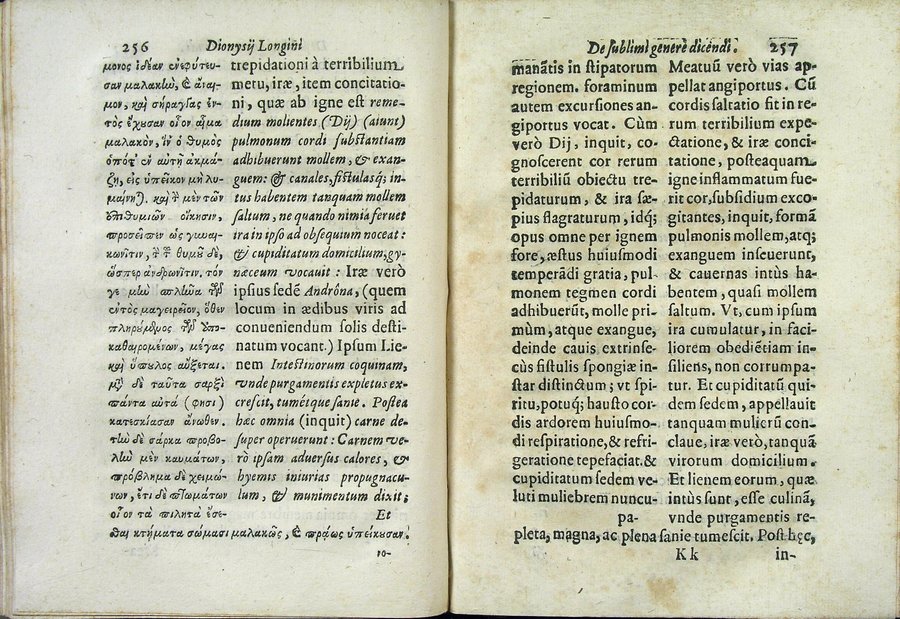 256 Dionysij Longini
μονος ἰδέαν ἐνεφύτευ-
σαν μαλακὴν, & ἄναι-
μον, καὶ σήραγγας ἐν-
τὸς ἔχουσαν οἷον αἷμα
μαλακὸν, ἵν ὁ θυμὸς
ὁπότ' ἐν αὐτῇ ἀκμά-
ζῃ, εἰς ὑπεῖκον μὴ λυ-
μαίνῃ. καὶ τ̃ μὲν τῶν
ἐπιθυμιῶν οἴκησιν,
προσεῖπεν ὡς γυναι-
κωνῖτιν, τ̃ τ̃ θυμοῦ δὲ,
ὥσπερ ἀνδρωνῖτιν. τόν
γε μὴν σπλῆνα τῶν
ἐντὸς μαγειρεῖον, ὅθεν
πληρούμενος τῶν ἀπο-
καθαιρομένων, μέγας
καὶ ὕπουλος αὔξεται.
μετὰ δὲ ταῦτα σαρξὶ
πάντα αὐτὰ (φησὶ)
κατεσκίασαν ἄνωθεν.
τὴν δὲ σάρκα προβο-
λὴν μὲν καυμάτων,
πρόβλημα δὲ χειμώ-
νων, ἔτι δὲ πτωμάτων
οἷον τὰ πιλητὰ ἔσε-
σθαι κτήματα σώμασι μαλακῶς, & πράως ὑπείκουσαν.
trepidationi à terribilium
metu, iræ, item concitatio-
ni, quæ ab igne est reme-
dium molientes (Dij) (aiunt)
pulmonum cordi substantiam
adhibuerunt mollem, & exan-
guem: & canales, fistulasq; in-
tus habentem tanquam mollem
saltum, ne quando nimia feruet
ira in ipso ad obsequium noceat:
& cupiditatum domicilium, gy-
næceum vocauit: Iræ verò
ipsius sedẽ Andrôna, (quem
locum in ædibus viris ad
conueniendum solis desti-
natum vocant.) Ipsum Lie-
nem Intestinorum coquinam,
vnde purgamentis expletus ex-
crescit, tumétque sanie. Postea
hæc omnia (inquit) carne de-
super operuerunt: Carnem ve-
rò ipsam aduersus calores, &
hyemis iniurias propugnacu-
lum, & munimentum dixit;
Et
10-
De sublimi genere dicendi. 257
manãtis in stipatorum
regionem. foraminum
autem excursiones an-
giportus vocat. Cùm
verò Dij, inquit, co-
gnoscerent cor rerum
terribiliũ obiectu tre-
pidaturum, & ira sæ-
pius flagraturum, idq;
opus omne per ignem
fore, æstus huiusmodi
temperãdi gratia, pul-
monem tegmen cordi
adhibuerũt, molle pri-
mùm, atque exangue,
deinde cauis extrinse-
cùs fistulis spongiæ in-
star distinctum; vt spi-
ritu, potuq; hausto cor-
dis ardorem huiusmo-
di respiratione, & refri-
geratione tepefaciat. &
cupiditatum sedem ve-
luti muliebrem nuncu-
pa-
Meatuũ verò vias ap-
pellat angiportus. Cũ
cordis saltatio fit in re-
rum terribilium expe-
ctatione, & iræ conci-
tatione, posteaquam
igne inflammatum fue-
rit cor, subsidium exco-
gitantes, inquit, formã
pulmonis mollem, atq;
exanguem inseuerunt,
& cauernas intùs ha-
bentem, quasi mollem
saltum. Vt, cum ipsum
ira cumulatur, in faci-
liorem obediẽtiam in-
siliens, non corrumpa-
tur. Et cupiditatũ qui-
dem sedem, appellauit
tanquam mulierũ con-
claue, iræ verò, tanquã
virorum domicilium.
Et lienem eorum, quæ
intùs sunt, esse culinã,
vnde purgamentis re-
pleta, magna, ac plena sanie tumescit. Post hęc,
Kk in-